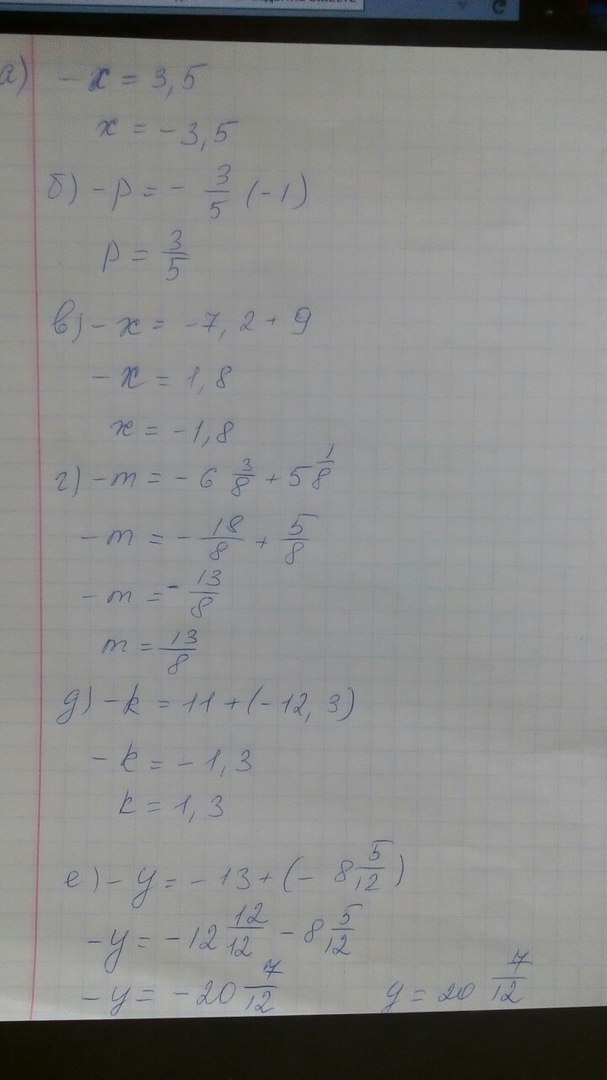 а) -x = 3,5
x = -3,5
б) -p = - 3/5 (-1)
p = 3/5
в) -x = -7,2 + 9
-x = 1,8
x = -1,8
г) -m = -6 3/8 + 5 1/8
-m = - 18/8 + 5/8
-m = - 13/8
m = 13/8
д) -k = 11 + (-12,3)
-k = -1,3
k = 1,3
е) -y = -13 + (- 8 5/12)
-y = -12 12/12 - 8 5/12
-y = -20 7/12 y = 20 7/12